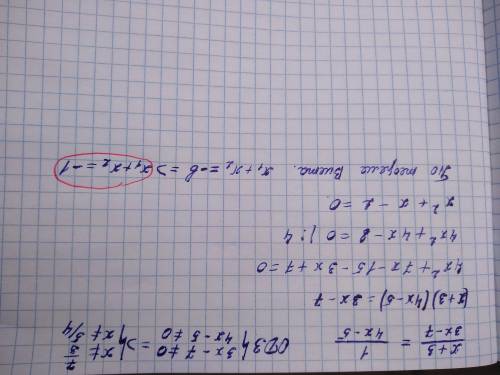 (x+3)/(3x-7) = 1/(4x-5) ОДЗ { 3x-7≠0 4x-5≠0 => { x≠7/3 x≠5/4
(x+3)(4x-5) = 3x-7
4x² + 7x - 15 - 3x + 7 = 0
4x² + 4x - 8 = 0 | : 4
x² + x - 2 = 0
По теореме Виета. x₁+x₂ = -в => x₁+x₂ = -1